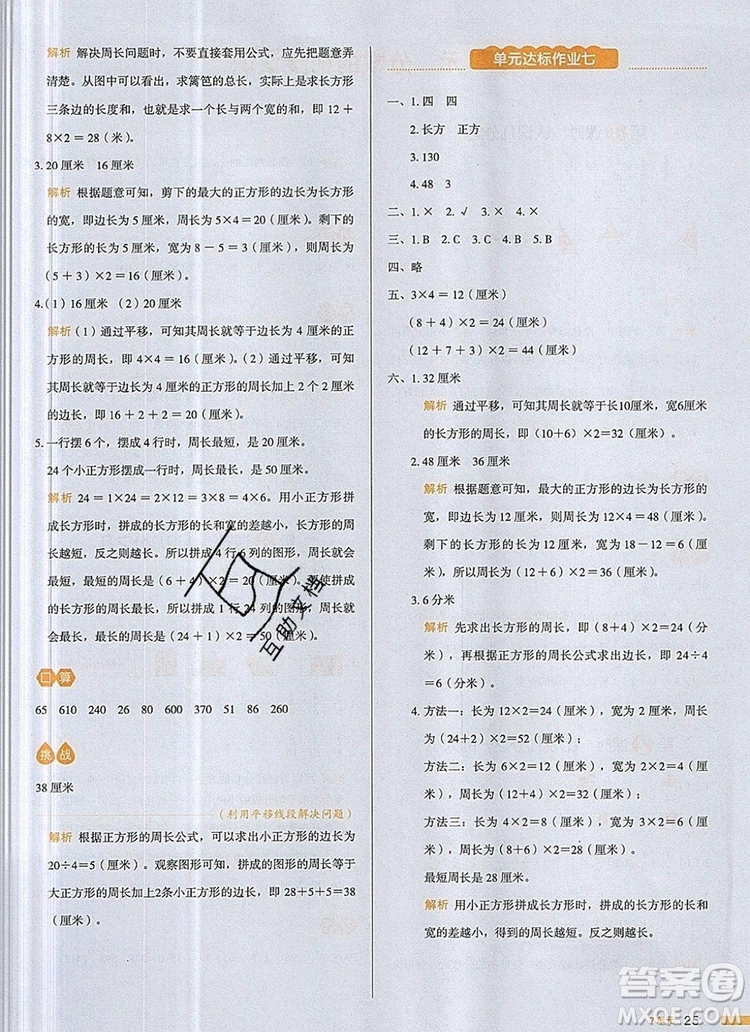 解析 解决周长问题时，不要直接套用公式，应先把题意弄
清楚。从图中可以看出，求篱笆的总长，实际上是求长方形
三条边的长度和，也就是求一个长与两个宽的和，即 12 +
8×2 = 28（米）。
3. 20 厘米 16 厘米
解析 根据题意可知，剪下的最大的正方形的边长为长方形
的宽，即边长为 5 厘米，周长为 5×4 = 20（厘米）。剩下的
长方形的宽为 8 − 5 = 3（厘米），所以剩下长方形的周长为
（5 + 3）×2 = 16（厘米）。
4.（1）16 厘米 （2）20 厘米
解析（1）通过平移，可知其周长就等于边长为 4 厘米的正
方形的周长，即 4×4 = 16（厘米）。（2）通过平移，可知其
周长就等于边长为 4 厘米的正方形的周长加上 2 条 2 厘米
的边长，即 16 + 2 + 2 = 20（厘米）。
5. 一行摆 6 个，摆成 4 行时，周长最短，是 20 厘米。
24 个小正方形摆成一行时，周长最长，是 50 厘米。
解析 24 = 1×24 = 2×12 = 3×8 = 4×6。用小正方形拼
成长方形时，拼成的长方形的长和宽的差越小，长方形的周
长越短，反之则越长。所以拼成 4 行 6 列的图形，周长最
短，最短周长是（6 + 4）×2 = 20（厘米）。要使拼成的
周长最长，所以拼成 1 行 24 列的图形，周长最长，最长
周长是（24 + 1）×2 = 50（厘米）。
口算
65 610 240 26 80 700 800 370 51 86 260
挑战
38 厘米
（利用平移线段解决问题）
解析 根据正方形的周长公式，可以求出小正方形的边长为
20÷4=5（厘米）。观察图形可知，拼成的图形的周长等于
大正方形的周长加上2条小正方形的边长，即 28+5+5=38
（厘米）。
单元达标作业七
一、1. 四 四
2. 长方 正方
3. 130
4. 48 3
二、1. × 2. √ 3. × 4. ×
三、1. B 2. C 3. B 4. B 5. B
四、略
五、3×4 = 12（厘米）
（8 + 4）×2 = 24（厘米）
（12 + 7 + 3）×2 = 44（厘米）
六、1. 32 厘米
解析 通过平移，可知其周长就等于长10厘米，宽6厘
米的长方形的周长，即（10+6）×2=32（厘米）。
2. 48 厘米 36 厘米
解析 根据题意可知，最大的正方形的边长为长方形的
宽，即边长为 12 厘米，周长为 12×4=48（厘米）。
剩下的小长方形的宽为 18−12=6（厘米），所以小长
方形的周长为（12+6）×2=36（厘米）。
3. 6 分米
解析 先求出长方形的周长，即（8+4）×2=24（分
米），再根据长方形的周长公式求出边长，即 24÷4=
6（分米）。
4. 方法一：长为 12×2=24（厘米），宽为 2 厘米，周长
为（24+2）×2=52（厘米）。
方法二：长为 6×2=12（厘米），宽为 2×2=4（厘
米），周长为（12+4）×2=32（厘米）。
方法三：长为 4×2=8（厘米），宽为 3×2=6（厘
米），周长为（8+6）×2=28（厘米）。
最短周长是 28 厘米。
解析 用小正方形拼成长方形时，拼成的长方形的长和
宽的差越小，得到的周长越短。反之则越长。
互助文档
答案圈
MXQE.COM
25